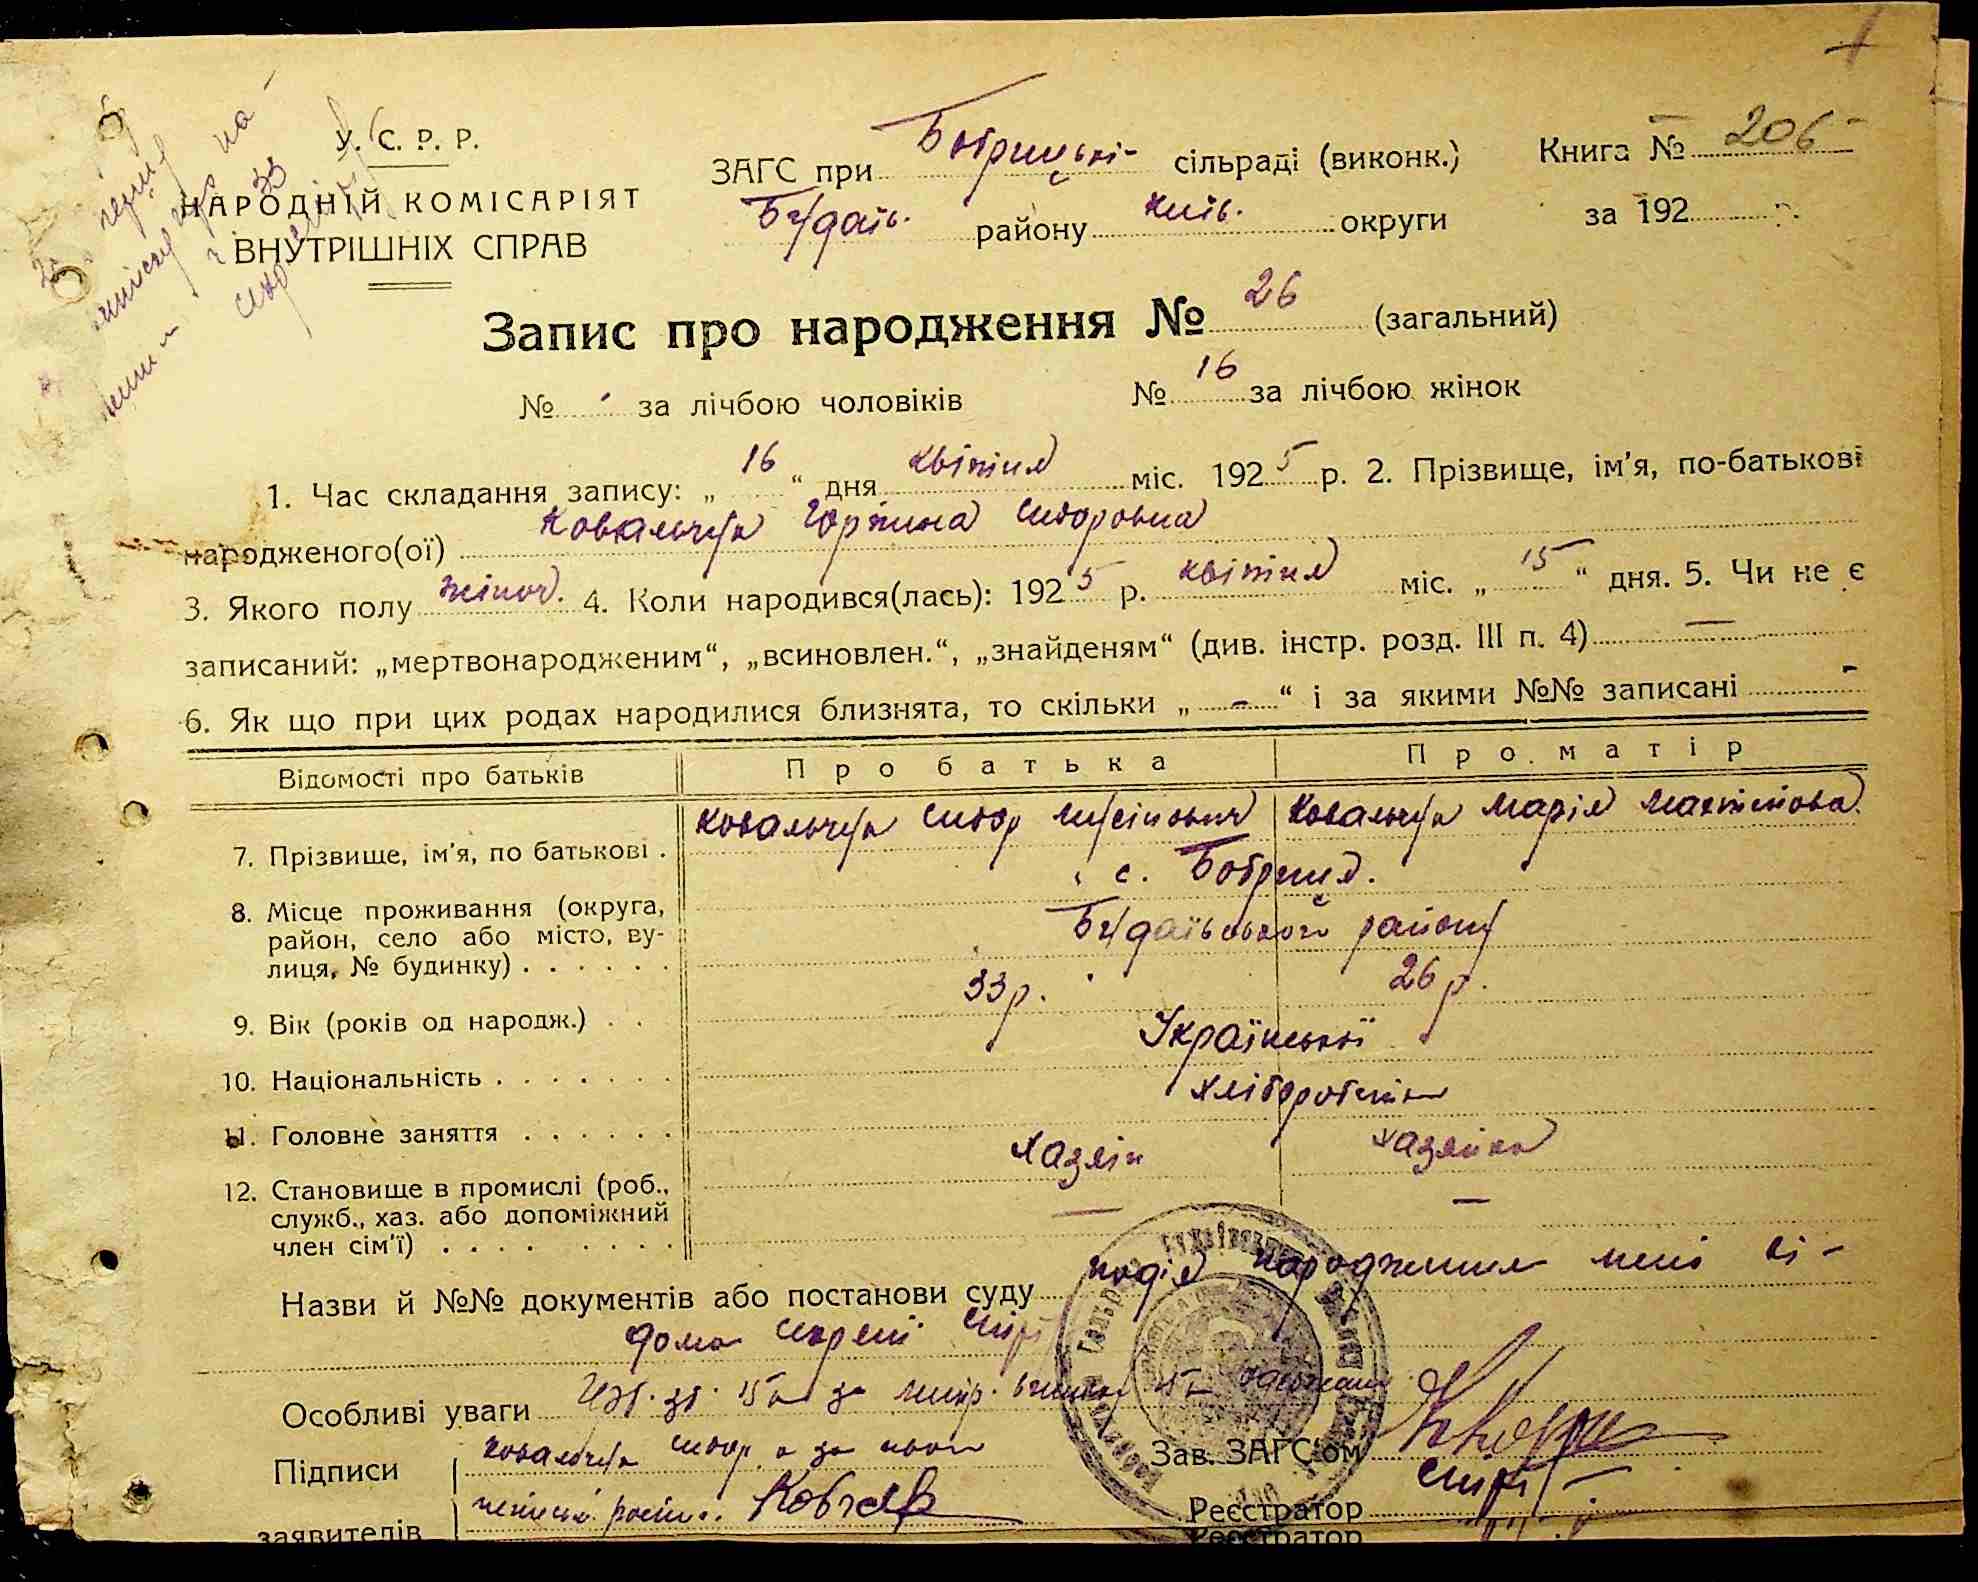 У. С. Р. Р.
НАРОДНІЙ КОМІСАРІЯТ
ВНУТРІШНІХ СПРАВ
ЗАГС при Бобрицькі- сільраді (виконк.)
Будаїв. району Київ. округи
Книга № 206
за 192 р.
Запис про народження № 26 (загальний)
№ за лічбою чоловіків № 16 за лічбою жінок
1. Час складання запису: „ 16 “ дня квітня міс. 1925 р. 2. Прізвище, ім'я, по-батькові
народженого(ої) Ковальчук Горпина Сидоровна
3. Якого полу жіноч. 4. Коли народився(лась): 1925 р. квітня міс. „ 15 “ дня. 5. Чи не є
записаний: „мертвонародженим“, „всиновлен.“, „знайденям“ (див. інстр. розд. III п. 4) —
6. Як що при цих родах народилися близнята, то скільки „ – “ і за якими №№ записані -
Відомості про батьків Про батька Про матір
7. Прізвище, ім'я, по батькові . Ковальчук Сидор Мусійович Ковальчук Марія
8. Місце проживання (округа, район, село або місто, вулиця, № будинку) с. Бобриця.
Будаївського району
9. Вік (років од народж.) 33 р. 26 р.
10. Національність Української
11. Головне заняття хлібороби
12. Становище в промислі (роб., служб., хаз. або допоміжний член сім'ї) Хазяїн Хазяйка
— —
Назви й №№ документів або постанови суду подія народження мені ві-
дома
Особливі уваги
Підписи Ковальчук Сидор а за його
заявителів
Зав. ЗАГС'ом
Реєстратор
Реєстратор